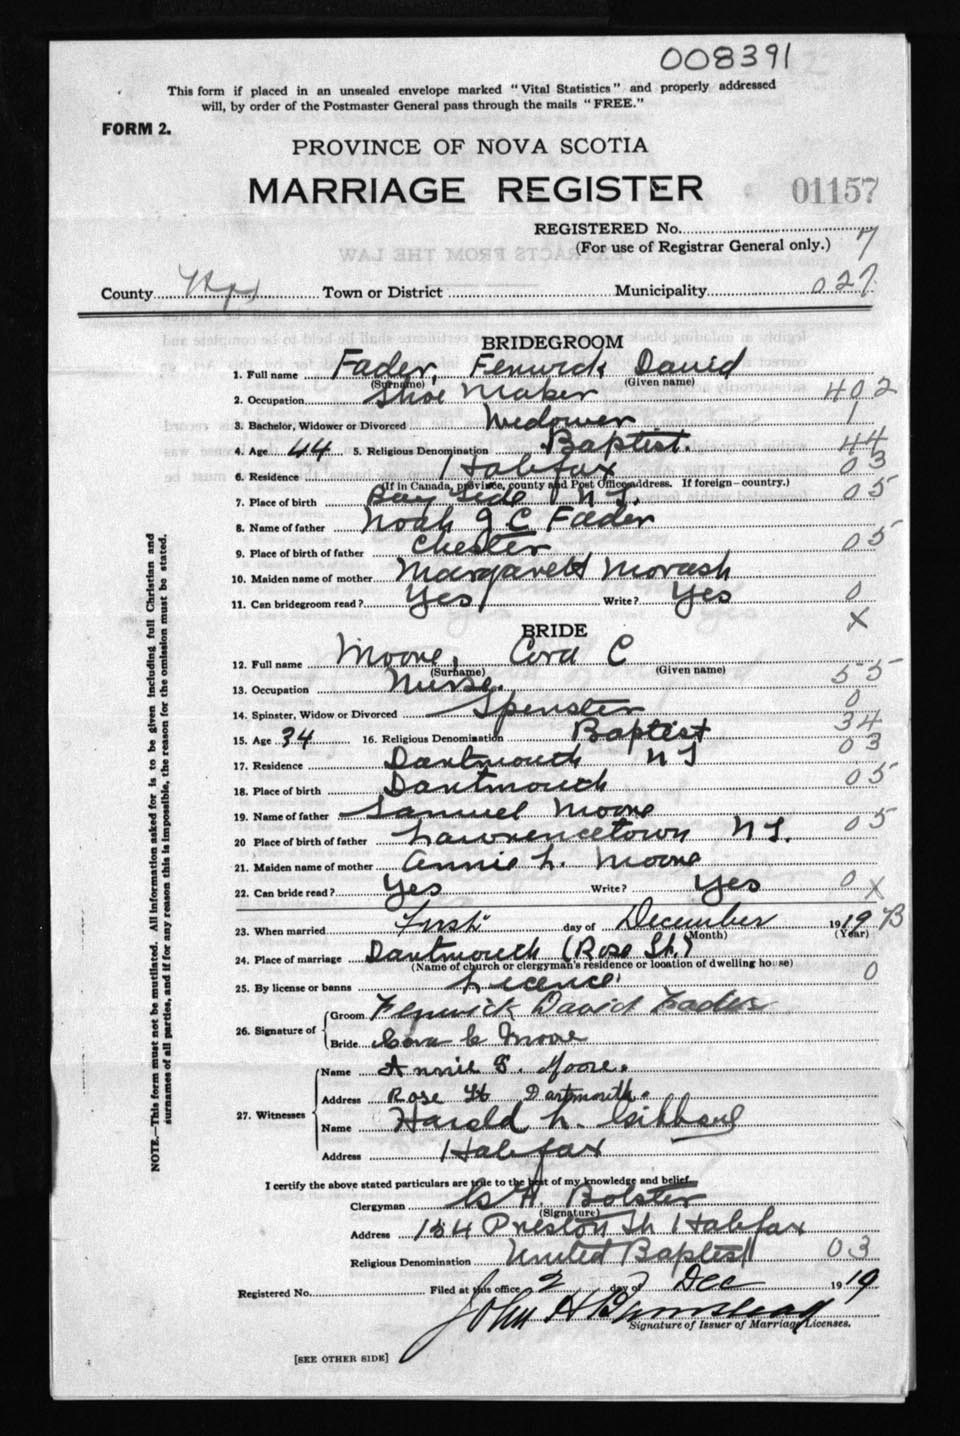 008391
This form if placed in an unsealed envelope marked "Vital Statistics" and properly addressed
will, by order of the Postmaster General pass through the mails "FREE."
FORM 2.
PROVINCE OF NOVA SCOTIA
MARRIAGE REGISTER 01157
REGISTERED No. 7
(For use of Registrar General only.)
County Hfx Town or District Municipality 027
BRIDEGROOM
1. Full name Fader, Fenwick David
(Surname) (Given name)
2. Occupation Shoe Maker 402
3. Bachelor, Widower or Divorced Widower 1
4. Age 44 5. Religious Denomination Baptist. 44
6. Residence Halifax 03
(If in Canada, province, county and Post Office address. If foreign—country.)
7. Place of birth Bay Side N S. 05
8. Name of father Noah J C Fader
9. Place of birth of father Chester 05
10. Maiden name of mother Margarett Morash
11. Can bridegroom read? Yes Write? Yes 0
X
BRIDE
12. Full name Moore, Cora C
(Surname) (Given name)
13. Occupation Nurse. 55
14. Spinster, Widow or Divorced Spinster 0
15. Age 34 16. Religious Denomination Baptist 34
17. Residence Dartmouth N S 03
18. Place of birth Dartmouth 05
19. Name of father Samuel Moore
20 Place of birth of father Lawrencetown N S. 05
21. Maiden name of mother Annie L. Moore
22. Can bride read? Yes Write? Yes 0 X
23. When married First day of December 1919 B
(Month) (Year)
24. Place of marriage Dartmouth (Rose St.)
(Name of church or clergyman's residence or location of dwelling house)
25. By license or banns Licence 0
26. Signature of
Groom Fenwick David Fader
Bride Cora C Moore
27. Witnesses
Name Annie G. Moore.
Address Rose St Dartmouth.
Name Harold L.
Address Halifax
I certify the above stated particulars are true to the best of my knowledge and belief.
Clergyman Bolster
(Signature)
Address 134 Preston St Halifax
Religious Denomination United Baptist 03
Registered No. Filed at this office 2 day of Dec 1919
John H
Signature of Issuer of Marriage Licenses.
[SEE OTHER SIDE]
NOTE.—This form must not be mutilated. All information asked for is to be given including full Christian and
surnames of all parties, and if for any reason this is impossible, the reason for the omission must be stated.